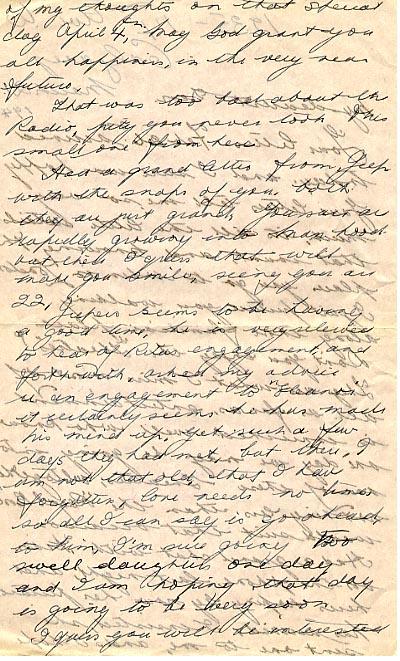 of my thoughts on that special
day April 4th, May God grant you
all happiness, in the very near
future.
That was too bad about the
Radio, pity you never took this
small one from here.
Had a grand letter from Jeep
with the snaps of you both
they are just grand,
rapidly growing into man hood
but then I guess that will
make you smile, seeing you are
22, Jeeper seems to be having
a good time, he is very
to hear of Ritas engagement, and
forthwith, asked my advice
in an engagement to "Eleanor"
it certainly seems he has made
his mind up, yet such a few
days they had met, but then, I
am not that old, that I have
forgotten, love needs no times
so all I can say is go ahead,
to him, I'm sure going Two
swell daughters one day
and I am hoping that day
is going to be very soon.
I guess you will be interested